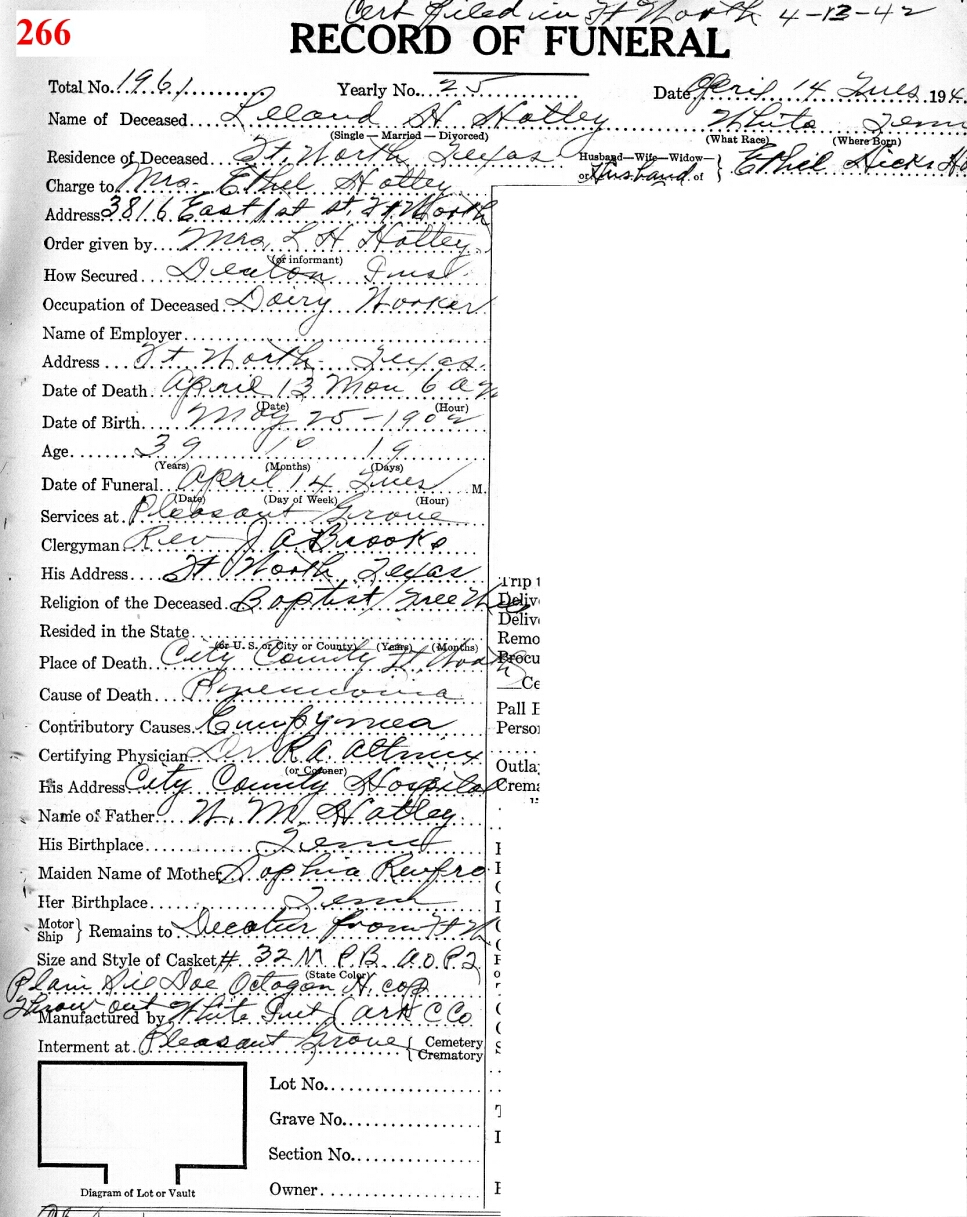 Cert Filed in Ft Worth 4-13-42
266
RECORD OF FUNERAL
Total No. 1961 Yearly No. 25 Date April 14 Tues. 194
Name of Deceased Leland H. Hatley White Tenn
(Single — Married — Divorced) (What Race) (Where Born)
Residence of Deceased Ft. Worth Texas Husband—Wife—Widow— or Husband of } Ethel Hicks Ha
Charge to Mrs. Ethel Hatley
Address 3816 East 1st St. Ft Worth
Order given by Mrs L H Hatley
(or informant)
How Secured Denton
Occupation of Deceased Dairy Worker
Name of Employer
Address Ft Worth Texas
Date of Death April 13 Mon 6 am
(Date) (Hour)
Date of Birth May 25-1902
Age 39 10 19
(Years) (Months) (Days)
Date of Funeral April 14 Tues M.
(Date) (Day of Week) (Hour)
Services at Pleasant Grove
Clergyman Rev J A Brooks
His Address Ft Worth, Texas
Religion of the Deceased Baptist Free
Resided in the State
(or U. S. or City or County) (Years) (Months)
Place of Death City County Ft Worth
Cause of Death Pnemonia
Contributory Causes Empymea
Certifying Physician Dr R. A.
(or Coroner)
His Address City County Hospital
Name of Father W. M. Hatley
His Birthplace Tenn
Maiden Name of Mother Sophia Renfro
Her Birthplace Tenn
Motor Ship } Remains to Decatur from Ft W
Size and Style of Casket # 32 M P.B. a.o.P.2
(State Color)
Plain Sil Doe Octagon H. cop
Throw out White Int (Ark C Co
Manufactured by
Interment at Pleasant Grove { Cemetery Crematory
Lot No.
Grave No.
Section No.
Owner
Diagram of Lot or Vault
Trip t
Deliv
Deliv
Remo
Procu
Ce
Pall
Person
Outla
Crema